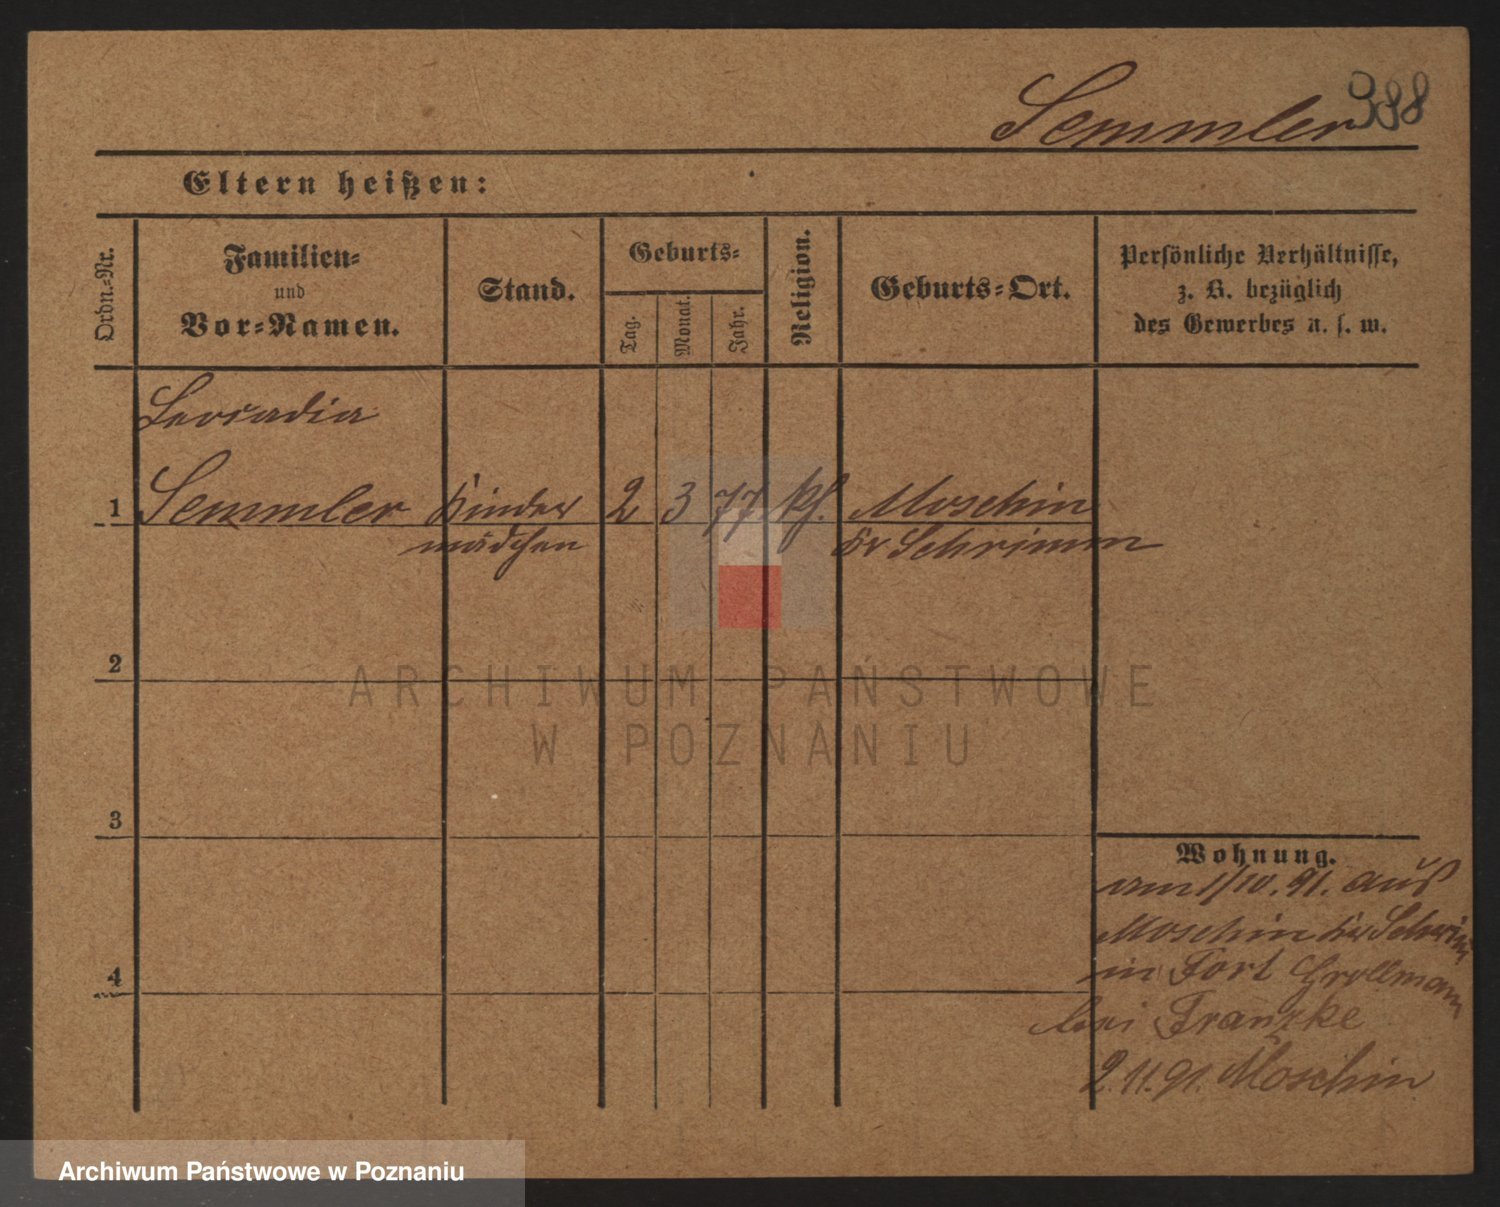 Semmler 398
Eltern heißen:
Ordn.-Nr.
Familien-
und
Vor-Namen.
Stand.
Geburts-
Tag.
Monat.
Jahr.
Religion.
Geburts-Ort.
Persönliche Verhältnisse,
z. B. bezüglich
des Gewerbes u. s. w.
Leocadia
1 Semmler Kinder 2 3 77 kf. Moschin
mädchen Kr Schrimm
2
ARCHIWUM PAŃSTWOWE
W POZNANIU
3
Wohnung.
am 1/10. 91. aus
Moschin Kr Schrim
4
in Fort Grollmann
bei Franzke
2.11.91. Moschin
Archiwum Państwowe w Poznaniu